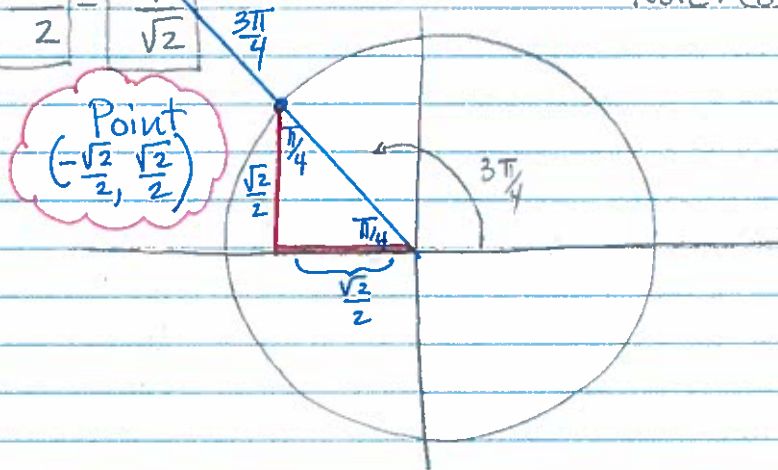 2 = √2
3π/4
Point
(-√2/2, √2/2)
π/4
3π/4
√2/2
π/4
√2/2